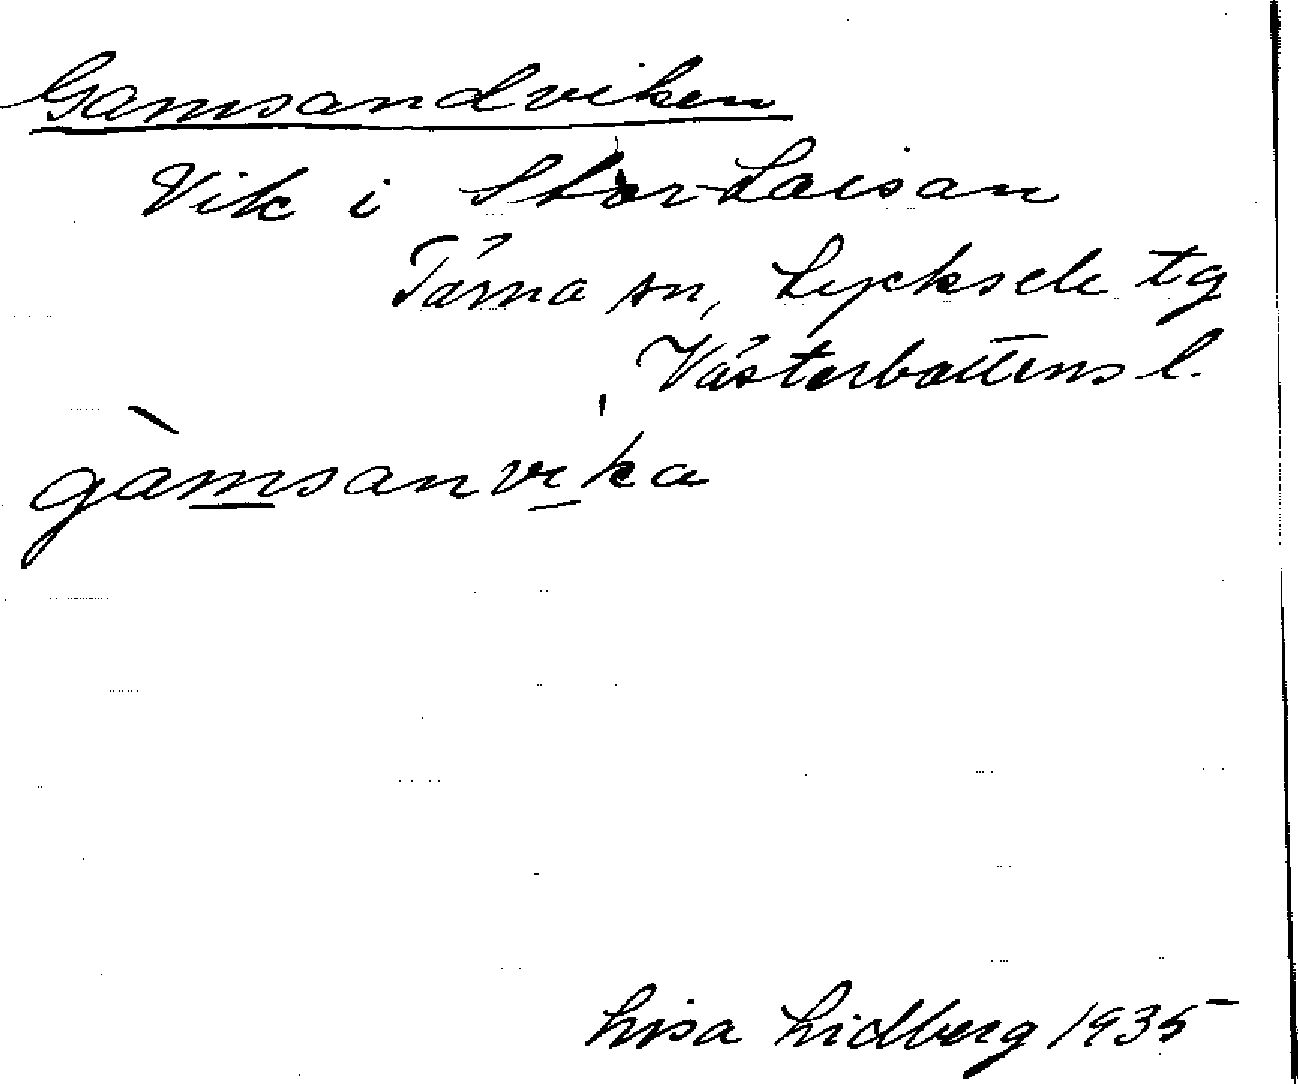 Gamsandviken
Vik i Stor-Laisan
Tärna sn, Lycksele tg
Västerbottens l.
gàmsanvika
Lisa Lidberg 1935